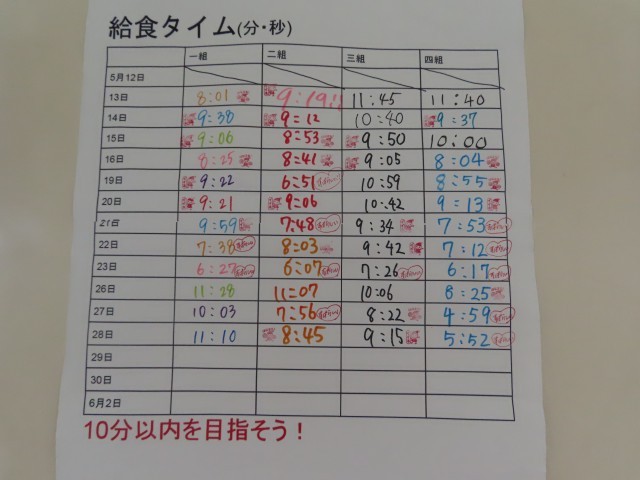 給食タイム(分・秒)
一組 二組 三組 四組
5月12日
13日 8:01 9:19!! 11:45 11:40
14日 9:38 9:12 10:40 9:37
15日 9:06 8:53 9:50 10:00
16日 8:25 8:41 9:05 8:04
19日 9:22 6:51 10:59 8:55
20日 9:21 9:06 10:42 9:13
21日 9:59 7:48 9:34 7:53
22日 7:38 8:03 9:42 7:12
23日 6:27 6:07 7:26 6:17
26日 11:28 11:07 10:06 8:25
27日 10:03 7:56 8:22 4:59
28日 11:10 8:45 9:15 5:52
29日
30日
6月2日
10分以内を目指そう!